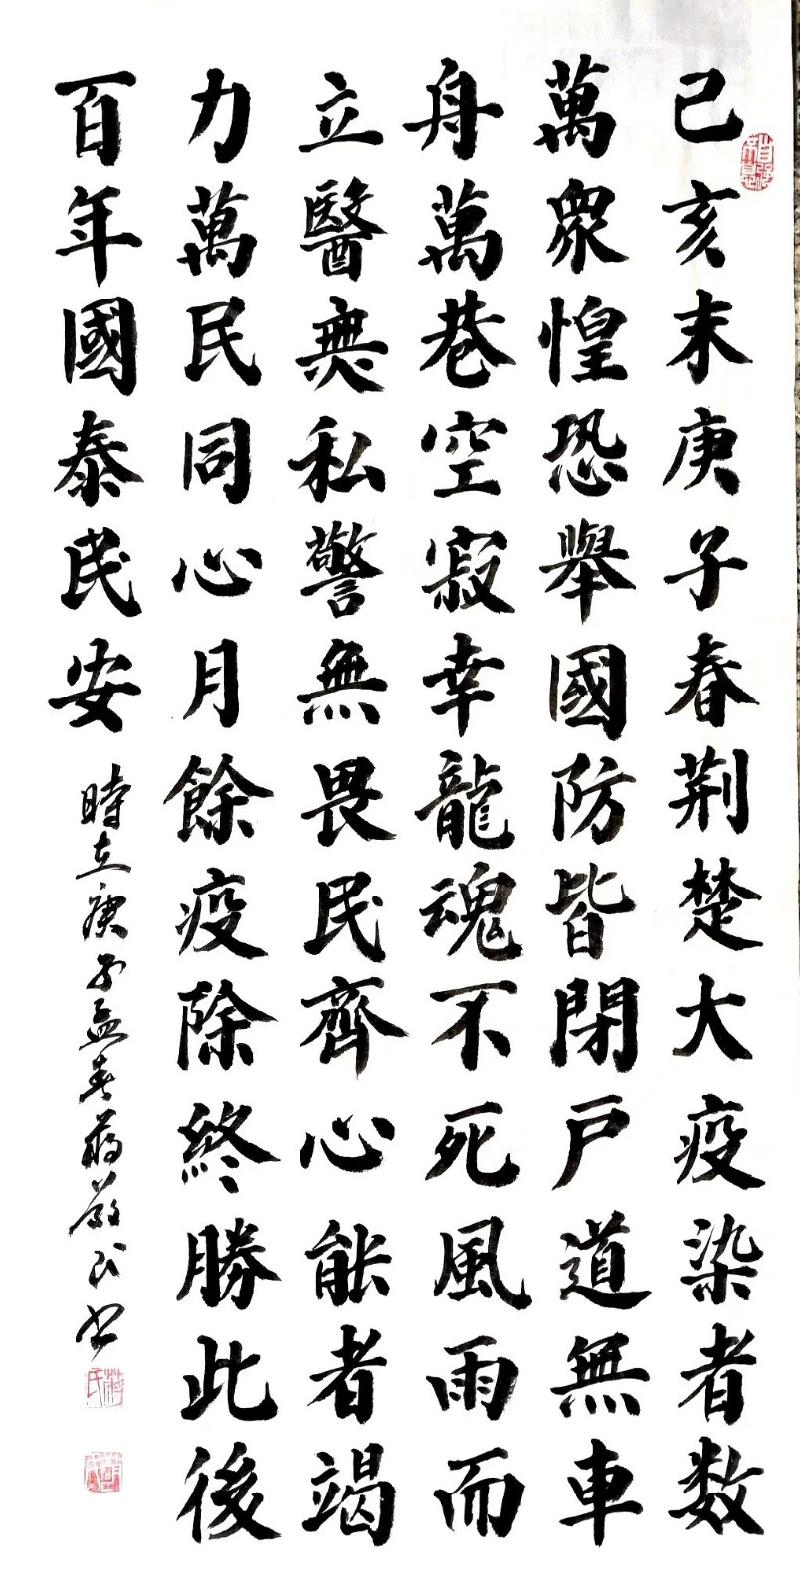 己亥末庚子春荆楚大疫染者数
萬衆惶恐舉國防皆閉戸道無車
舟萬巷空寂幸龍魂不死風雨而
立醫無私警無畏民齊心能者竭
力萬民同心月餘疫除終勝此後
百年國泰民安
時在庚子孟春蔣嚴民書